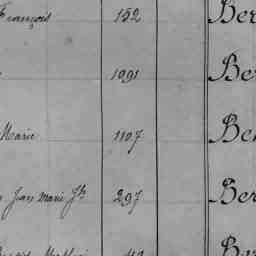 François 152 Ber
1091 Be
Marie 1107 Be
Jean Marie Jh 297 Ber